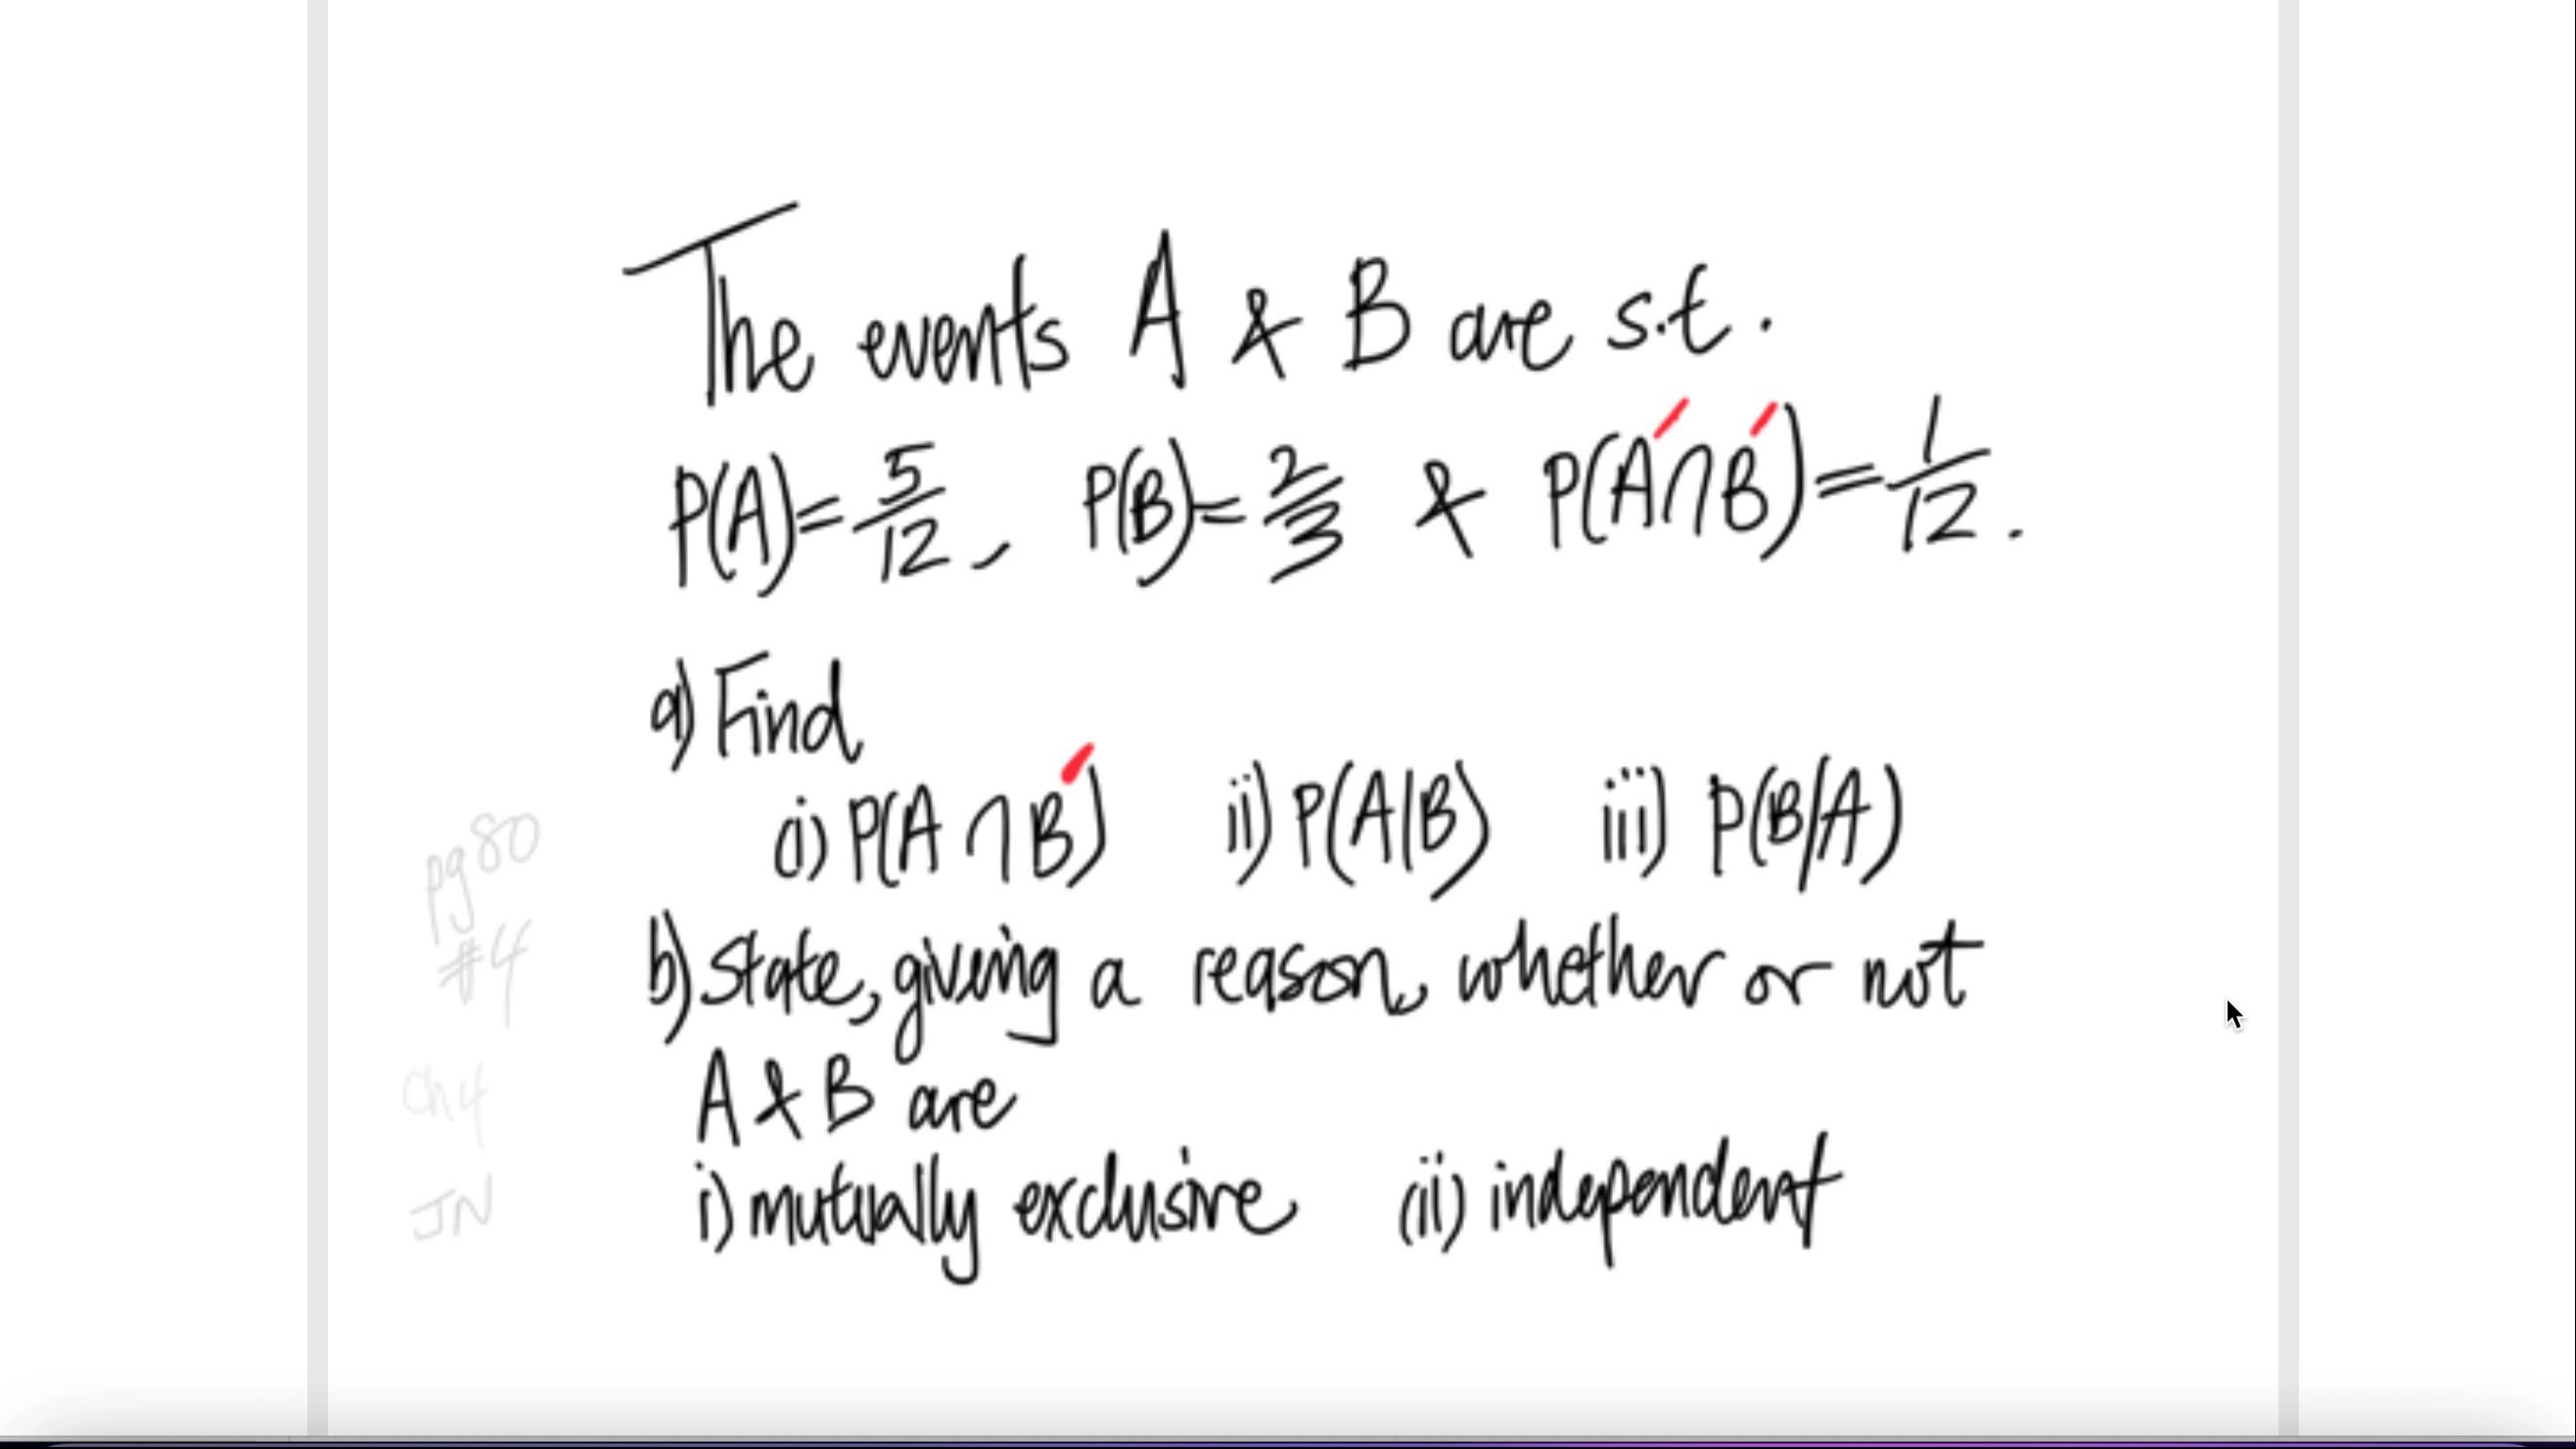 The events A & B are s.t.
P(A)=5/12, P(B)=2/3 & P(A'∩B')=1/12.
a) Find
(i) P(A∩B') ii) P(A|B) iii) P(B/A)
pg 80
#4
b) State, giving a reason, whether or not
A & B are
Ch 4
i) mutually exclusive (ii) independent
JN